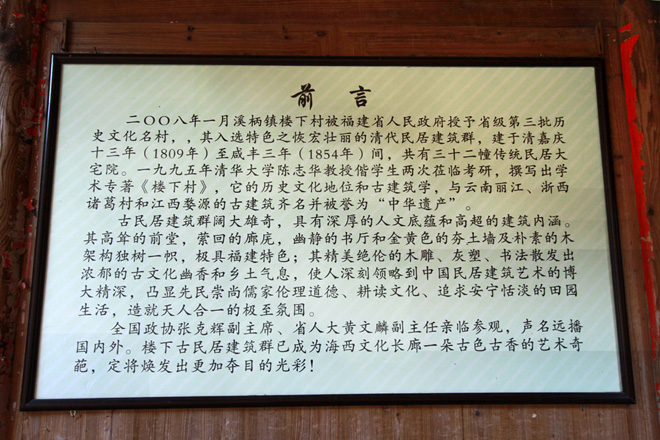 前 言
二〇〇八年一月溪柄镇楼下村被福建省人民政府授予省级第三批历
史文化名村，，其入选特色之恢宏壮丽的清代民居建筑群，建于清嘉庆
十三年（1809年）至咸丰三年（1854年）间，共有三十二幢传统民居大
宅院。一九九五年清华大学陈志华教授偕学生两次莅临考研，撰写出学
术专著《楼下村》，它的历史文化地位和古建筑学，与云南丽江、浙西
诸葛村和江西婺源的古建筑齐名并被誉为“中华遗产”。
古民居建筑群阔大雄奇，具有深厚的人文底蕴和高超的建筑内涵。
其高耸的前堂，萦回的廊庑，幽静的书厅和金黄色的夯土墙及朴素的木
架构独树一帜，极具福建特色；其精美绝伦的木雕、灰塑、书法散发出
浓郁的古文化幽香和乡土气息，使人深刻领略到中国民居建筑艺术的博
大精深，凸显先民崇尚儒家伦理道德、耕读文化、追求安宁恬淡的田园
生活，造就天人合一的极至氛围。
全国政协张克辉副主席、省人大黄文麟副主任亲临参观，声名远播
国内外。楼下古民居建筑群已成为海西文化长廊一朵古色古香的艺术奇
葩，定将焕发出更加夺目的光彩！